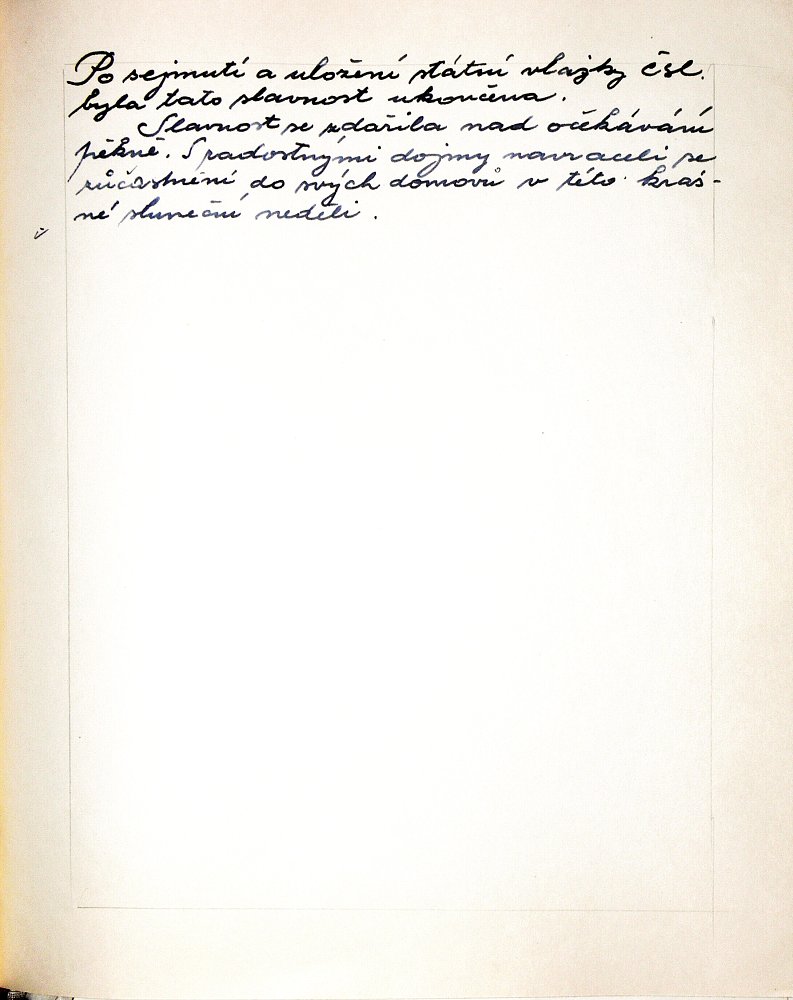 Po sejmutí a uložení státní vlajky čsl.
byla tato slavnost ukončena.
Slavnost se zdařila nad očekávání
pěkně. S radostnými dojmy navraceli se
zůčastnění do svých domovů v této krás-
né sluneční neděli.